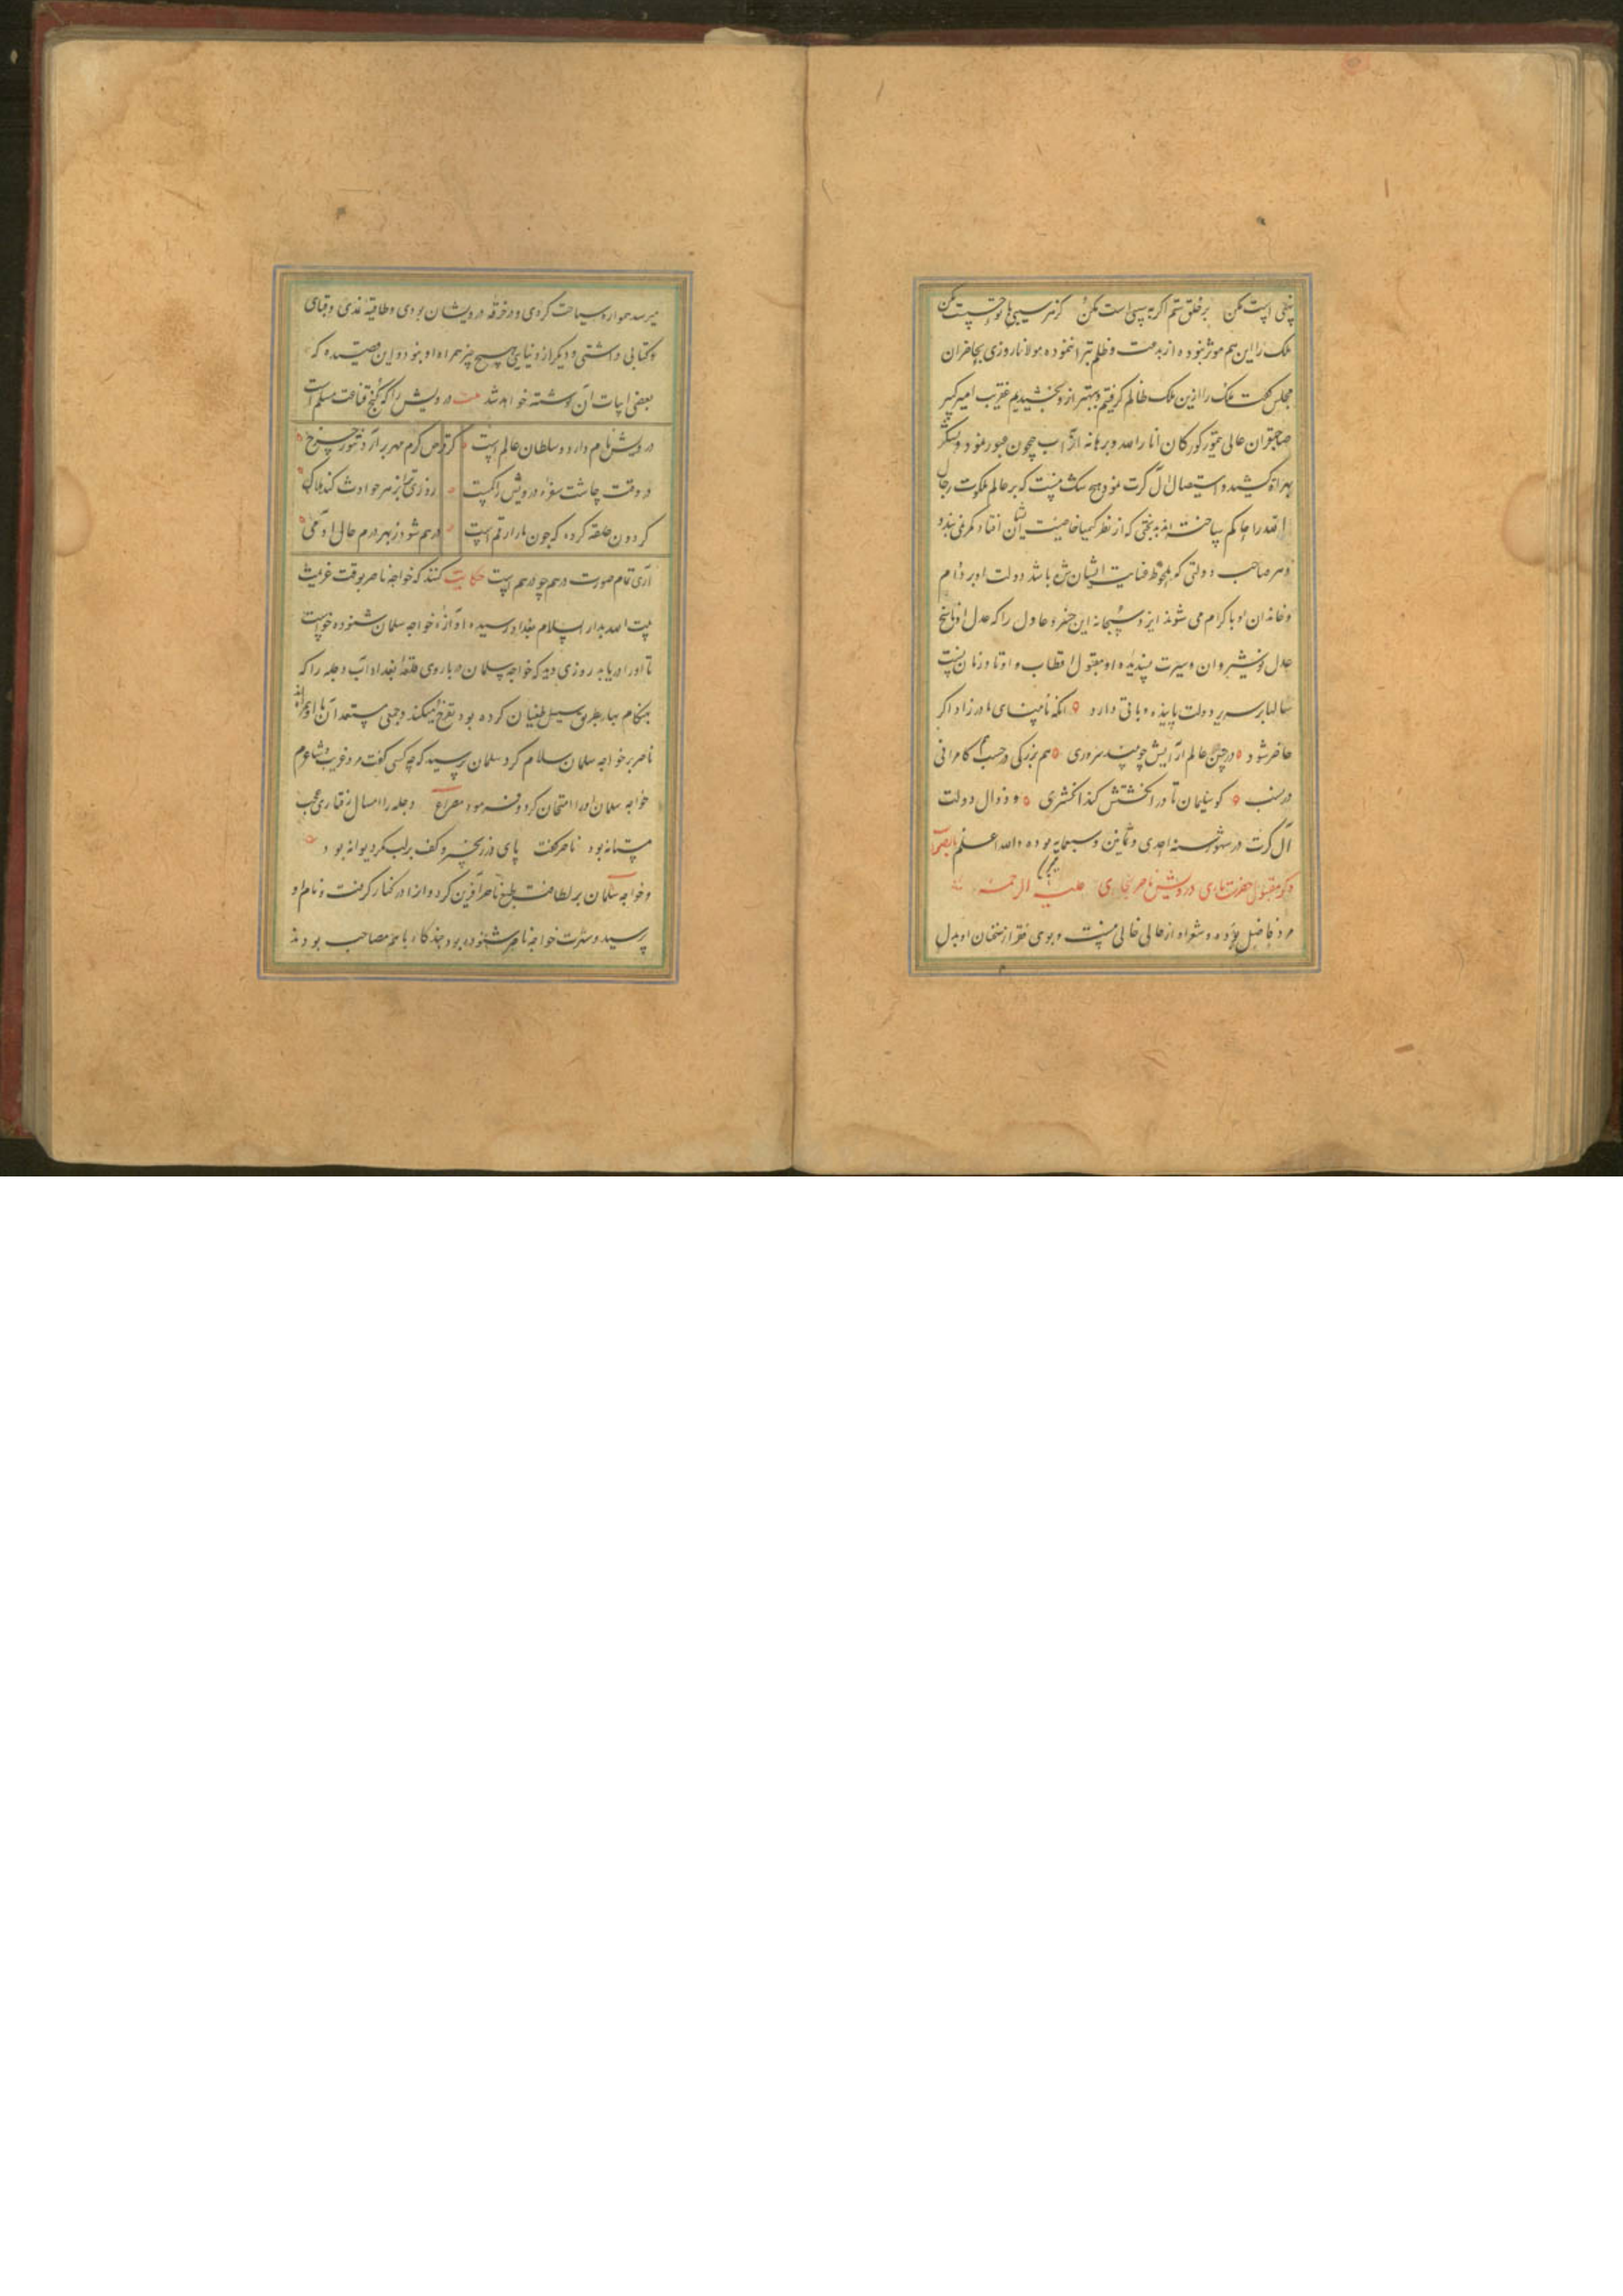 برخلق ستم اگر به سپی است مکن
ملک را این هم موثر نبوده از بدعت و ظلم تبرا ننموده مولانا روزی بحاضران
مجلس گفت ملک را ازین ملک ظالم گرفتیم و بهتر ازو بخشیدیم عنقریب امیر کبیر
صاحبقران عالی تیمور کورکان انار الله برهانه از آب جیحون عبور نمود و لشکر
بهراة کشید و استیصال آل کرت نمود و هیچ شک نیست که بر عالم ملکوت رجال
الله را حاکم ساخته اند بدبختی که از نظر کیمیا خاصیت ایشان افتاد کمر نمی بندد
و هر صاحب دولتی که ملحوظ عنایت ایشان باشد دولت او بر دوام
و خاندان او با کرام می شوند ایزد سبحانه این خسرو عادل را که عدل او ناسخ
عدل نوشیروان و سیرت پسندیده او مقبول اقطاب و اوتاد زمانست
سالها بر سریر دولت پاینده و باقی دارد انکه نامینای مادرزاد اگر
حاضر شود در جبین عالم آرایش چو بیند سروری هم بزرگی در حسب هم کامرانی
در نسب کو سلیمان تا در انکشتش کند انکشتری و زوال دولت
آل کرت در شهور سنه احدی و ثمانین و سبعمایه بوده والله اعلم بالصواب
ذکر مقبول حضرت باری درویش ناصر بخاری علیه الرحمه
مرد فاضل بوده و شعر او از حالی خالی نیست و بوی فقر از سخنان او بدل
میرسد همواره سیاحت کردی و در خرقه درویشان بودی و طاقیه نمدی و قبای
و کتابی داشتی و دیگر از دنیایی هیچ چیز همراه او نبود و این قصیده که
بعضی ابیات آن نوشته خواهد شد بیت درویش را که کنج قناعت مسلم است
درویش نام دارد و سلطان عالم است گر قرص گرم مهر برآرد تنور چرخ
در وقت چاشت سفره درویش را کمست روزی تو را بزهر حوادث کند هلاک
گردون حلقه کرده که چون مار ارقم است درهم شود زبهر درم حال آدمی
آری تمام صورت درهم چو درهم است حکایت کنند که خواجه ناصر بوقت عزیمت
بیت الله بدار السلام بغداد رسید و آوازه خواجه سلمان شنوده خواست
تا او را دریابد روزی دید که خواجه سلمان در باروی قلعه بغداد آب دجله را که
بهنگام بهار بطریق سیل طغیان کرده بود تفرج میکند و جمعی مستعدان با او همراه اند
ناصر بر خواجه سلمان سلام کرد سلمان پرسید که چه کسی گفت مرد غریب و شاعرم
خواجه سلمان او را امتحان کرد و فرمود مصراع دجله را امسال رفتاری عجب
مستانه بود ناصر گفت پای در زنجیر و کف بر لب مگر دیوانه بود
و خواجه سلمان بر لطافت طبع ناصر آفرین کرد و او را در کنار گرفت و نام او
پرسید و شهرت خواجه ناصر شنوده بود چند گاه با هم مصاحب بودند